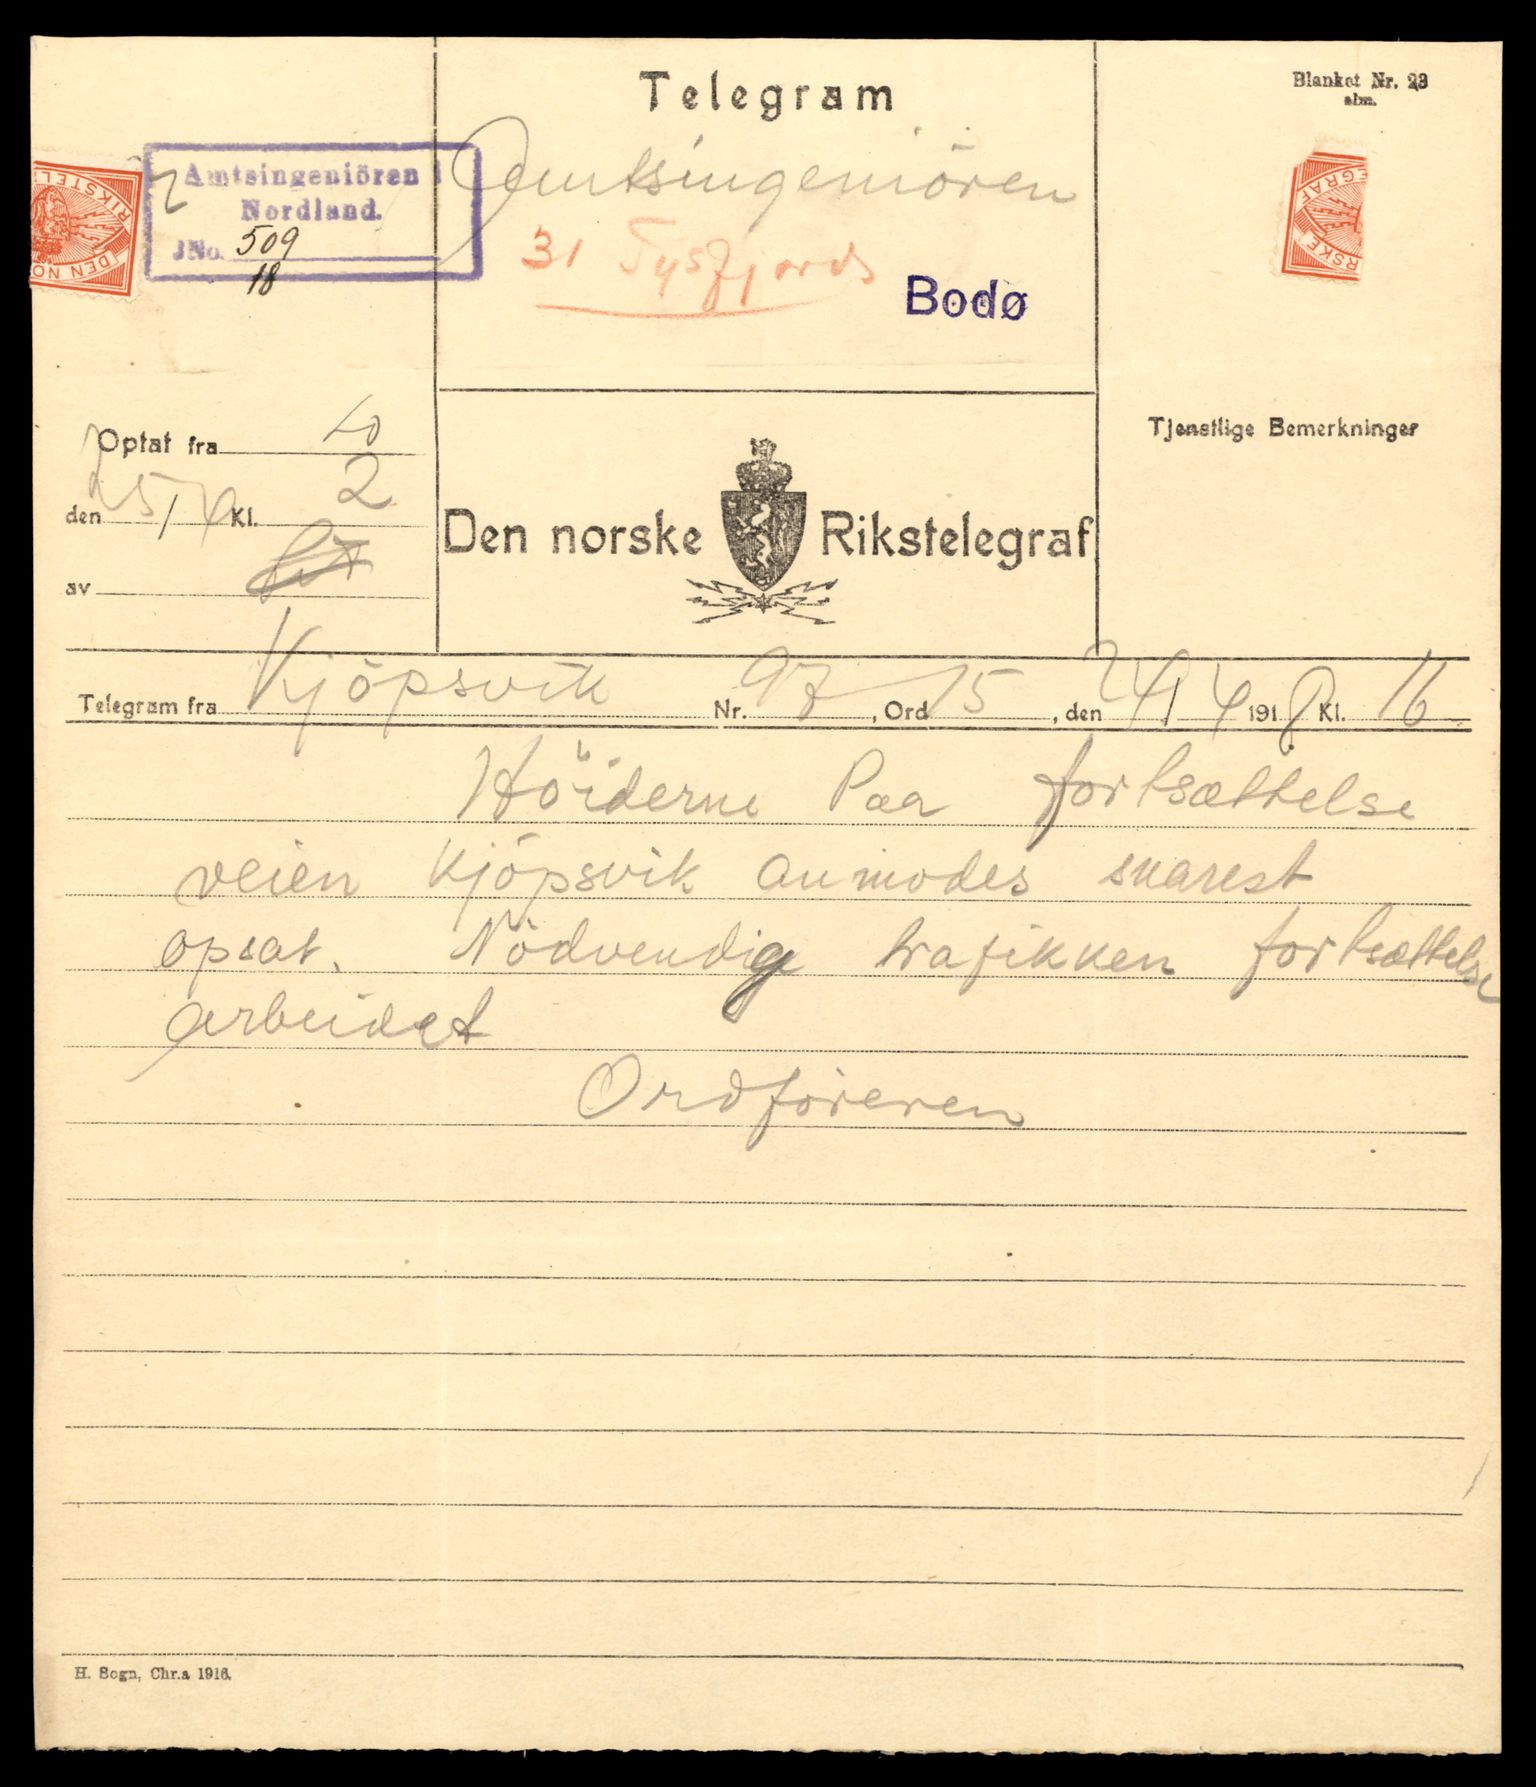 Telegram
Blanket Nr. 23
alm.
Amtsingeniören i
Nordland.
JNo. 509
18
Amtsingeniören
31 Tysfjords
Bodø
RIKSTEL
DEN NO
EGRAF
RSKE
Optat fra
den 25/4 Kl. 2
av
Tjenstlige Bemerkninger
Den norske Rikstelegraf
Telegram fra Kjöpsvik Nr. 97, Ord 15, den 24/4 1918 Kl. 16
Höiderne Paa fortsættelse
veien Kjöpsvik anmodes snarest
opsat. Nödvendig trafikken fortsættelse
arbeidet
Ordföreren
H. Sogn, Chr.a 1916.